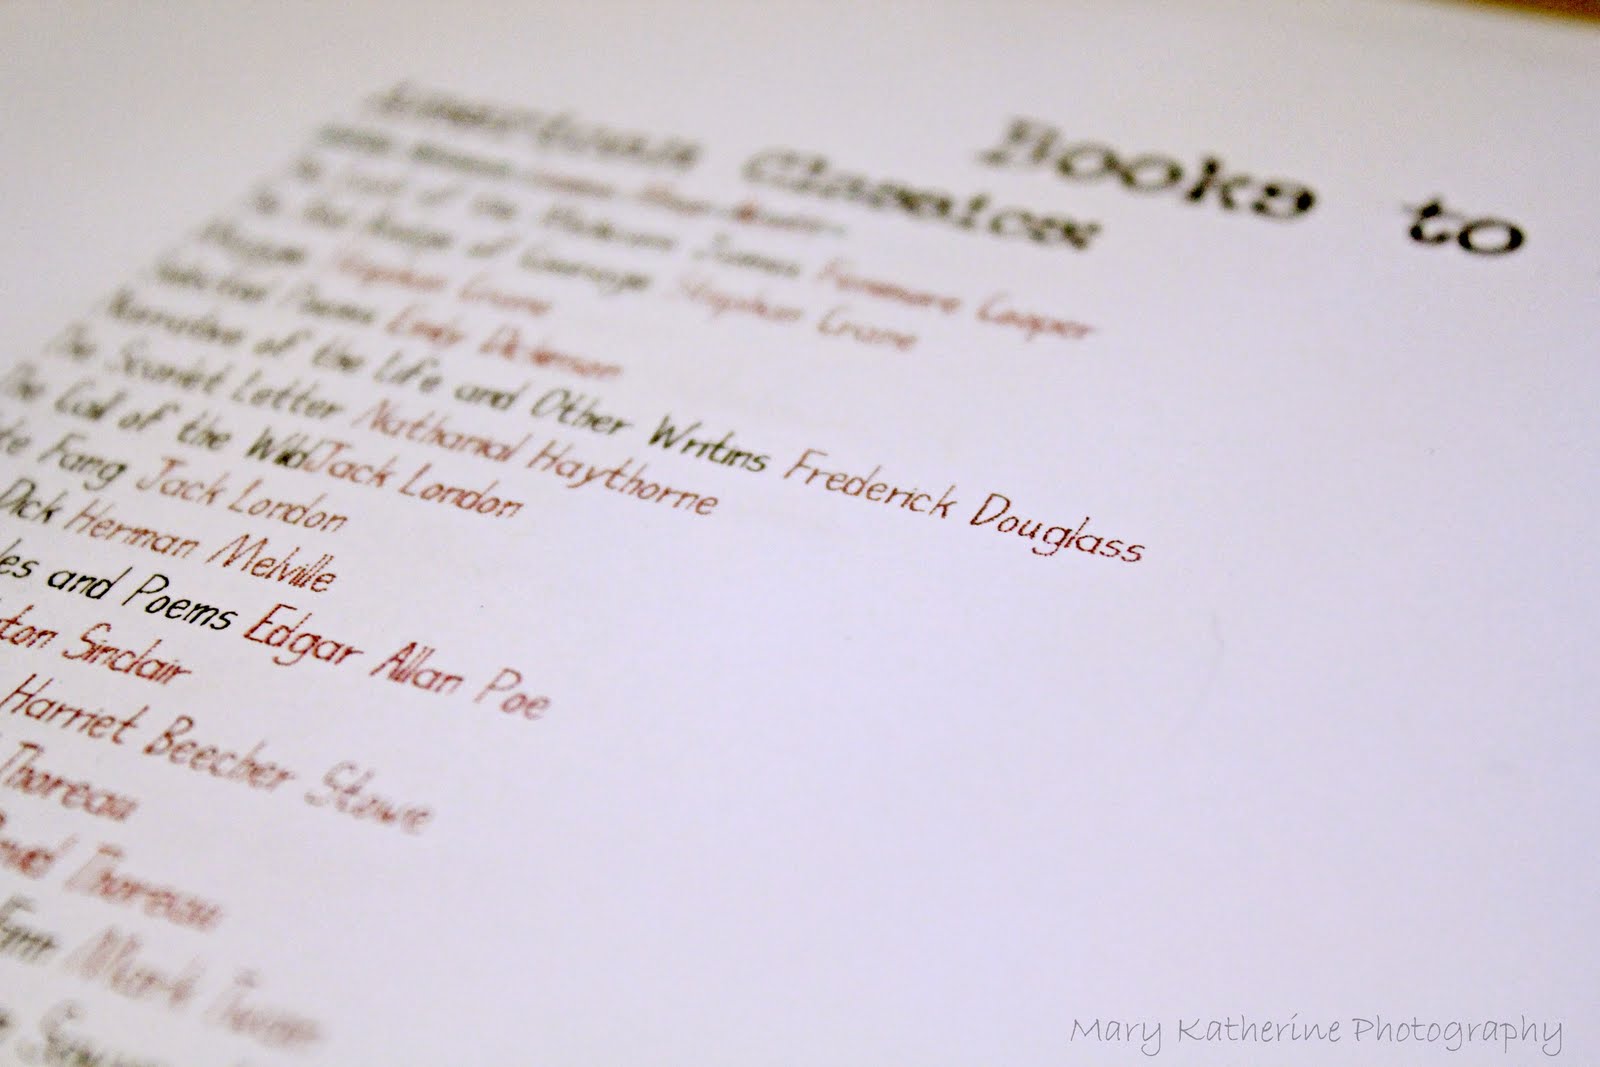 Books to
American Classics
Little Women Louisa May Alcott
The Last of the Mohicans James Fenimore Cooper
The Red Badge of Courage Stephen Crane
Maggie Stephen Crane
Selected Poems Emily Dickenson
Narrative of the Life and Other Writins Frederick Douglass
The Scarlet Letter Nathanial Haythorne
The Call of the WildJack London
te Fang Jack London
Dick Herman Melville
les and Poems Edgar Allan Poe
ton Sinclair
Harriet Beecher Stowe
Thoreau
Thoreau
Finn Mark Twain
Mary Katherine Photography